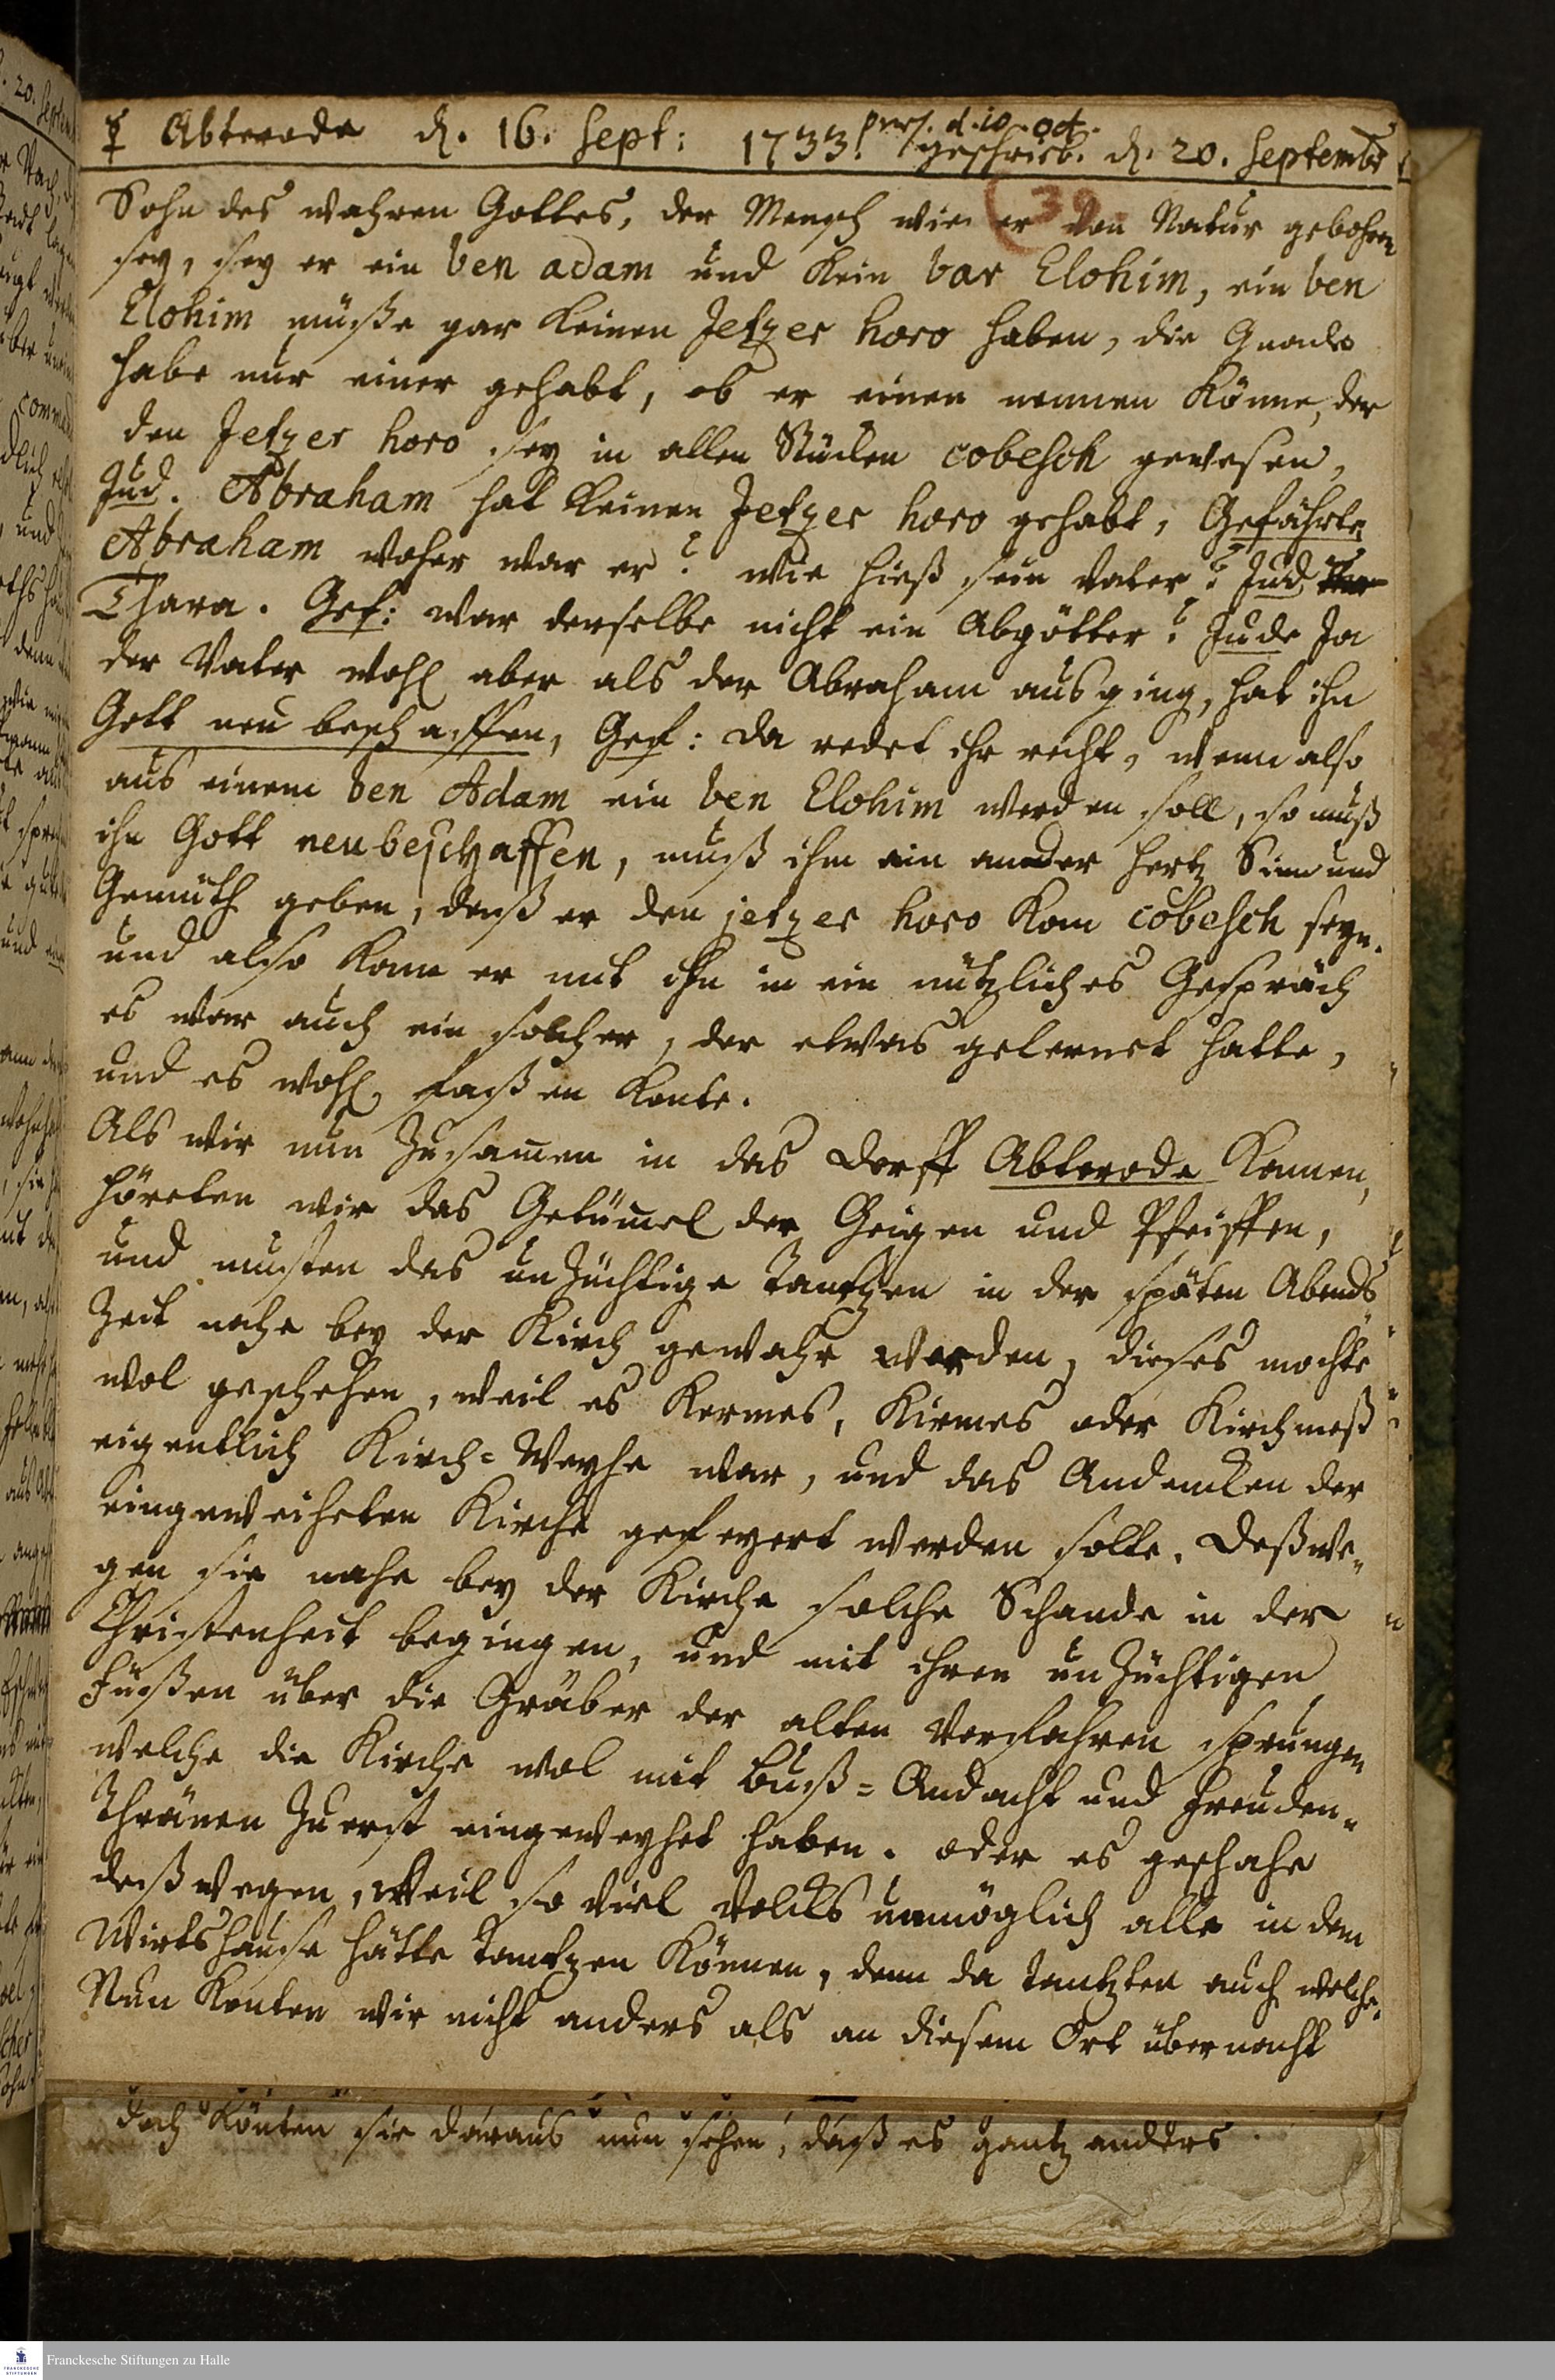 ☿ Abterode d. 16. Sept: 1733. pres. d. 10. oct.
geschrieb. d. 20. Septembr
(39
Sohn des wahren Gottes, der Mensch wie er von Natur gebohren
sey, sey er ein ben adam und kein bar Elohim, ein ben
Elohim müße gar keinen Jetzer horo haben, die Gnade
habe nur einer gehabt, ob er einen nennen könne, der
den Jetzer horo sey in allen Stücken cobesch gewesen,
Jud. Abraham hat keinen Jetzer horo gehabt, Gefährte
Abraham woher war er? wie hieß sein Vater? Jud
Thara. Gef: war derselbe nicht ein Abgötter? Jude Ja
der Vater wohl aber als der Abraham ausging, hat ihn
Gott neu beschaffen, Gef: da redet ihr recht, wenn also
aus einem ben Adam ein ben Elohim werden soll, so muß
ihn Gott neubeschaffen, muß ihm ein ander Hertz Sinn und
Gemüth geben, daß er den jetzer horo kan cobesch seyn.
und also kam er mit ihn in ein nützliches Gespräch
es war auch ein solcher, der etwas gelernet hatte,
und es wohl faßen konte.
Als wir nun zusamen in das Dorff Abterode kamen,
höreten wir das Getümel der Geigen und Pfeiffen,
und musten das unzüchtige tantzen in der späten Abends
Zeit nahe bey der Kirch gewahr werden, dieses mochte
wol geschehen, weil es Kermes, Kirmes oder Kirchmeß
eigentlich Kirch-Weyhe war, und das Andencken der
eingeweiheten Kirche gefeyert werden solte. Deßwe-
gen sie nahe bey der Kirche solche Schande in der
Christenheit begingen, und mit ihren unzüchtigen
Füßen über die Gräber der alten Vorfahren sprungen
welche die Kirche wol mit Buß-Andacht und Freuden-
Thränen zuerst eingeweyhet haben. oder es geschahe
deßwegen, weil so viel Volcks unmöglich alle in dem
Wirtshause hätte tantzen können, denn da tantzten auch welche.
Nun konten wir nicht anders als an diesem Ort übernacht
doch könten sie daraus nun sehen, daß es gantz anders
Franckesche Stiftungen zu Halle